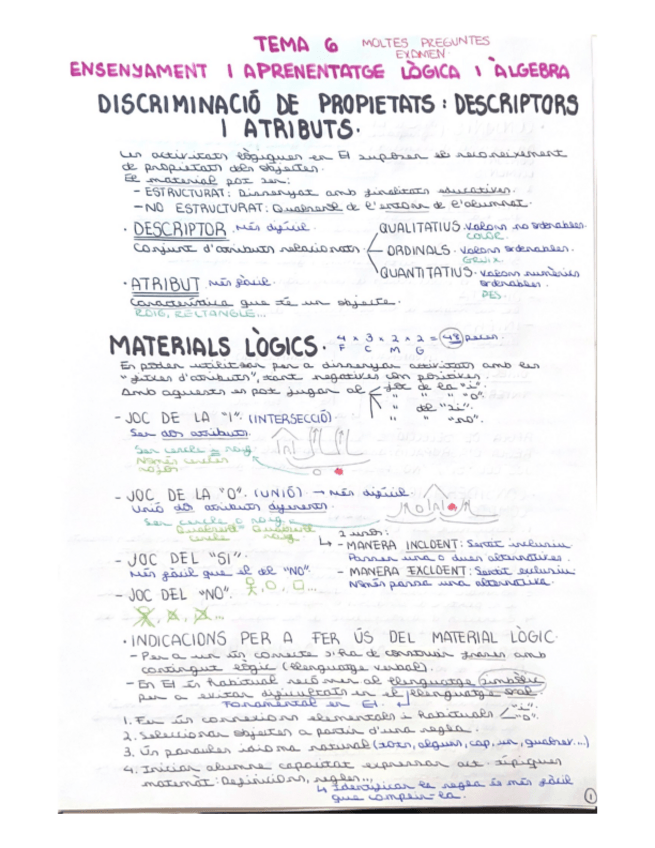 TEMA 6 MOLTES PREGUNTES
EXAMEN.
ENSENYAMENT I APRENENTATGE LÒGICA I ÀLGEBRA
DISCRIMINACIÓ DE PROPIETATS: DESCRIPTORS
I ATRIBUTS.
Les activitats lògiques en EI suposen el reconeixement
de propietats dels objectes.
El material pot ser:
- ESTRUCTURAT: Dissenyat amb finalitats educatives.
- NO ESTRUCTURAT: Quotidià de l'entorn de l'alumnat.
· DESCRIPTOR Més difícil.
Conjunt d'atributs relacionats
QUALITATIUS. Valors no ordenables.
COLOR.
ORDINALS. Valors ordenables.
GRUIX.
QUANTITATIUS. Valors numèrics
ordenables.
PES.
· ATRIBUT Més fàcil.
Característica que té un objecte.
ROIG, RECTANGLE...
MATERIALS LÒGICS. 4 x 3 x 2 x 2 = 48 peces.
F C M G
Es poden utilitzar per a dissenyar activitats amb les
"fitxes d'atributs", tant negatives com positives.
Amb aquests es pot jugar al joc de la "i".
" " "o".
" del "sí".
" " "no".
- JOC DE LA "I". (INTERSECCIÓ)
Ser dos atributs.
Ser cercle i roig:
Només cercles
rojos
- JOC DE LA "O". (UNIÓ) → Més difícil
Unió dos atributs diferents.
Ser cercle o roig
cercle roig.
2 usos:
- MANERA INCLOENT: Sentit inclusiu
Passen una o dues alternatives.
- MANERA EXCLOENT: Sentit exclusiu
Només passa una alternativa.
- JOC DEL "SÍ".
Més fàcil que el del "NO".
- JOC DEL "NO".
· INDICACIONS PER A FER ÚS DEL MATERIAL LÒGIC.
- Per a un ús correcte s'ha de construir frases amb
contingut lògic (llenguatge verbal).
- En EI és habitual recórrer al llenguatge simbòlic
per a evitar dificultats en el llenguatge oral
Fonamental en EI.
1. Fer ús connexions elementals i habituals "i".
"o".
2. Seleccionar objectes a partir d'una regla.
3. Ús paraules idioma natural (tots, alguns, cap, un, qualsevol...)
4. Iniciar alumne capacitat expressar act. típiques
matemàt: Definicions, regles...
↳ Identificar la regla és més fàcil
que complir-la.
1